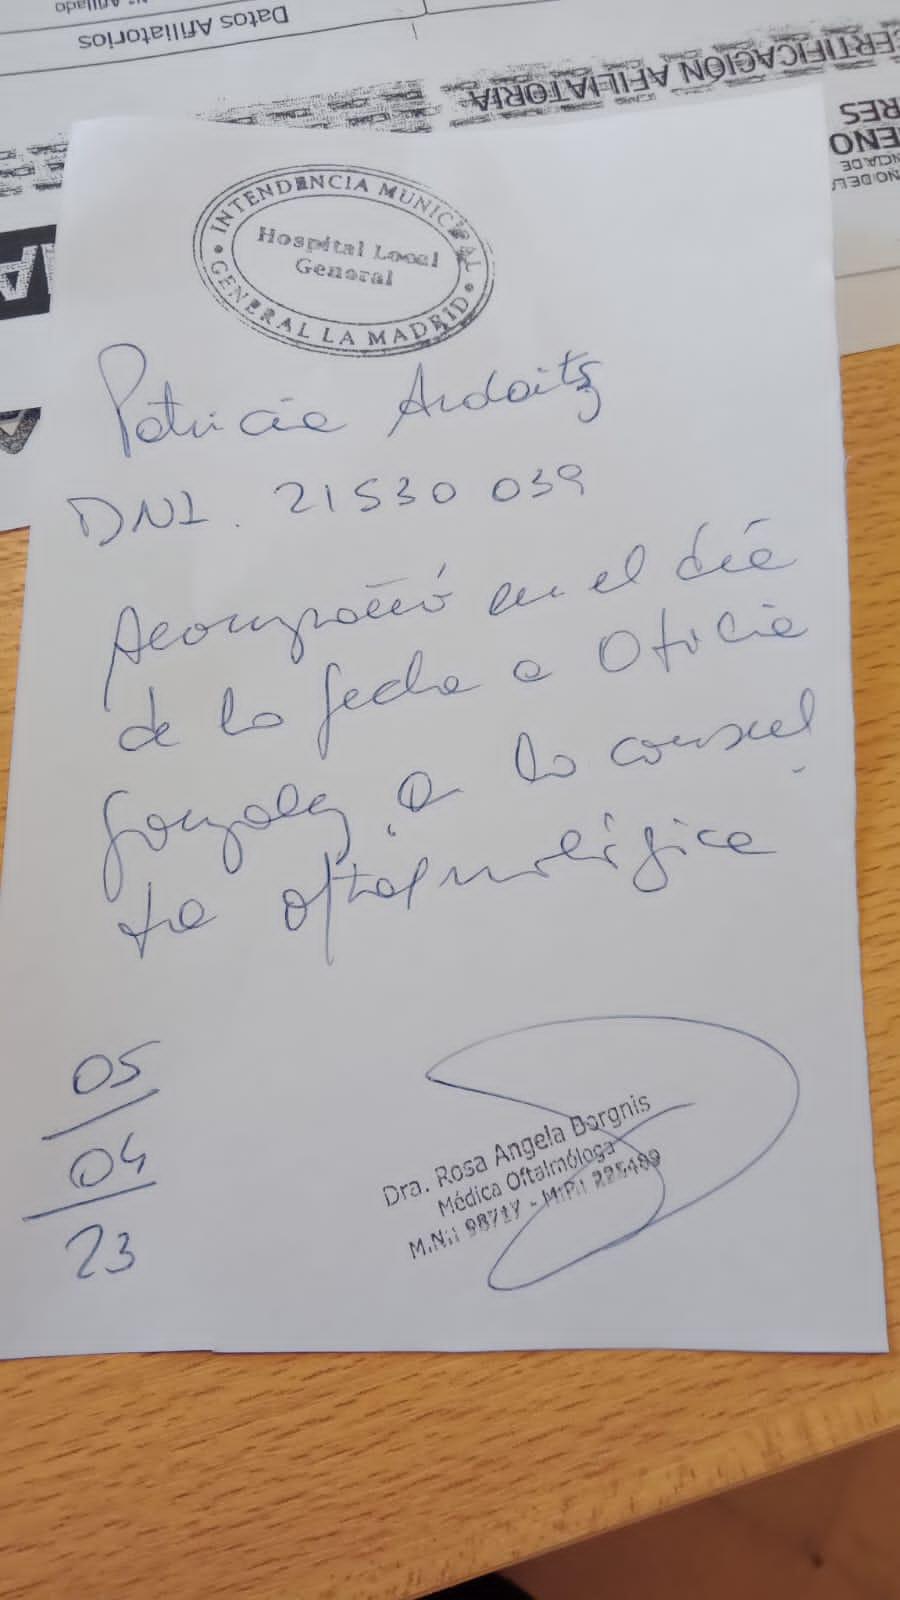 Afiliado
Datos Afiliatorios
CERTIFICACIÓN AFILIATORIA
INTENDENCIA MUNICIPAL
Hospital Local
General
GENERAL LA MADRID
Patricia Ardaitz
DNI. 21530 039
Acompañó en el día
de la fecha a Otilia
Gonzalez, a la consul
ta oftalmológica
05
04
23
Dra. Rosa Angela Borgnis
Médica Oftalmóloga
M.N.: 98717 - M.P.: 225489